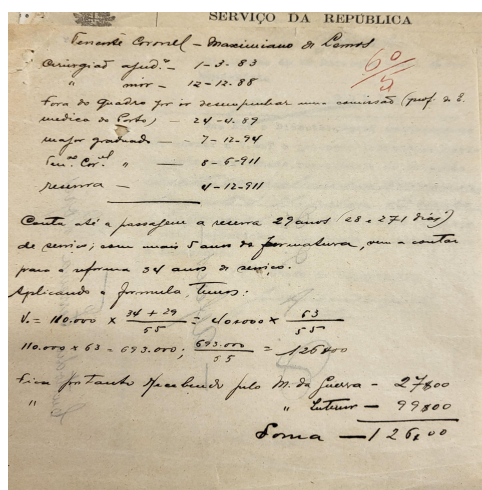 SERVIÇO DA REPÚBLICA
60
5
Tenente Coronel - Maximiano de Lemos
Cirurgião ajud.e - 1-3-83
" mor - 12-12-88
Fora do quadro por ir desempenhar uma comissão (prof. da E.
medica do Porto) - 24-4-89
major graduado - 7-12-94
Ten.te Cor.el " - 8-6-911
reserva - 4-12-911
Conta até a passagem a reserva 29 anos (28 e 271 dias)
de serviço; com mais 5 anos de formatura, vem a contar
para o reforma 34 anos de serviço.
Aplicando a formula, temos:
V. = 110.000 x 34 + 29 / 55 = x 63 / 55
110.000 x 63 = 693.000; 693.000 / 55 = 126$00
Fica portanto recebendo pelo M. da Guerra - 27$00
" " Interior - 99$00
Soma - 126$00